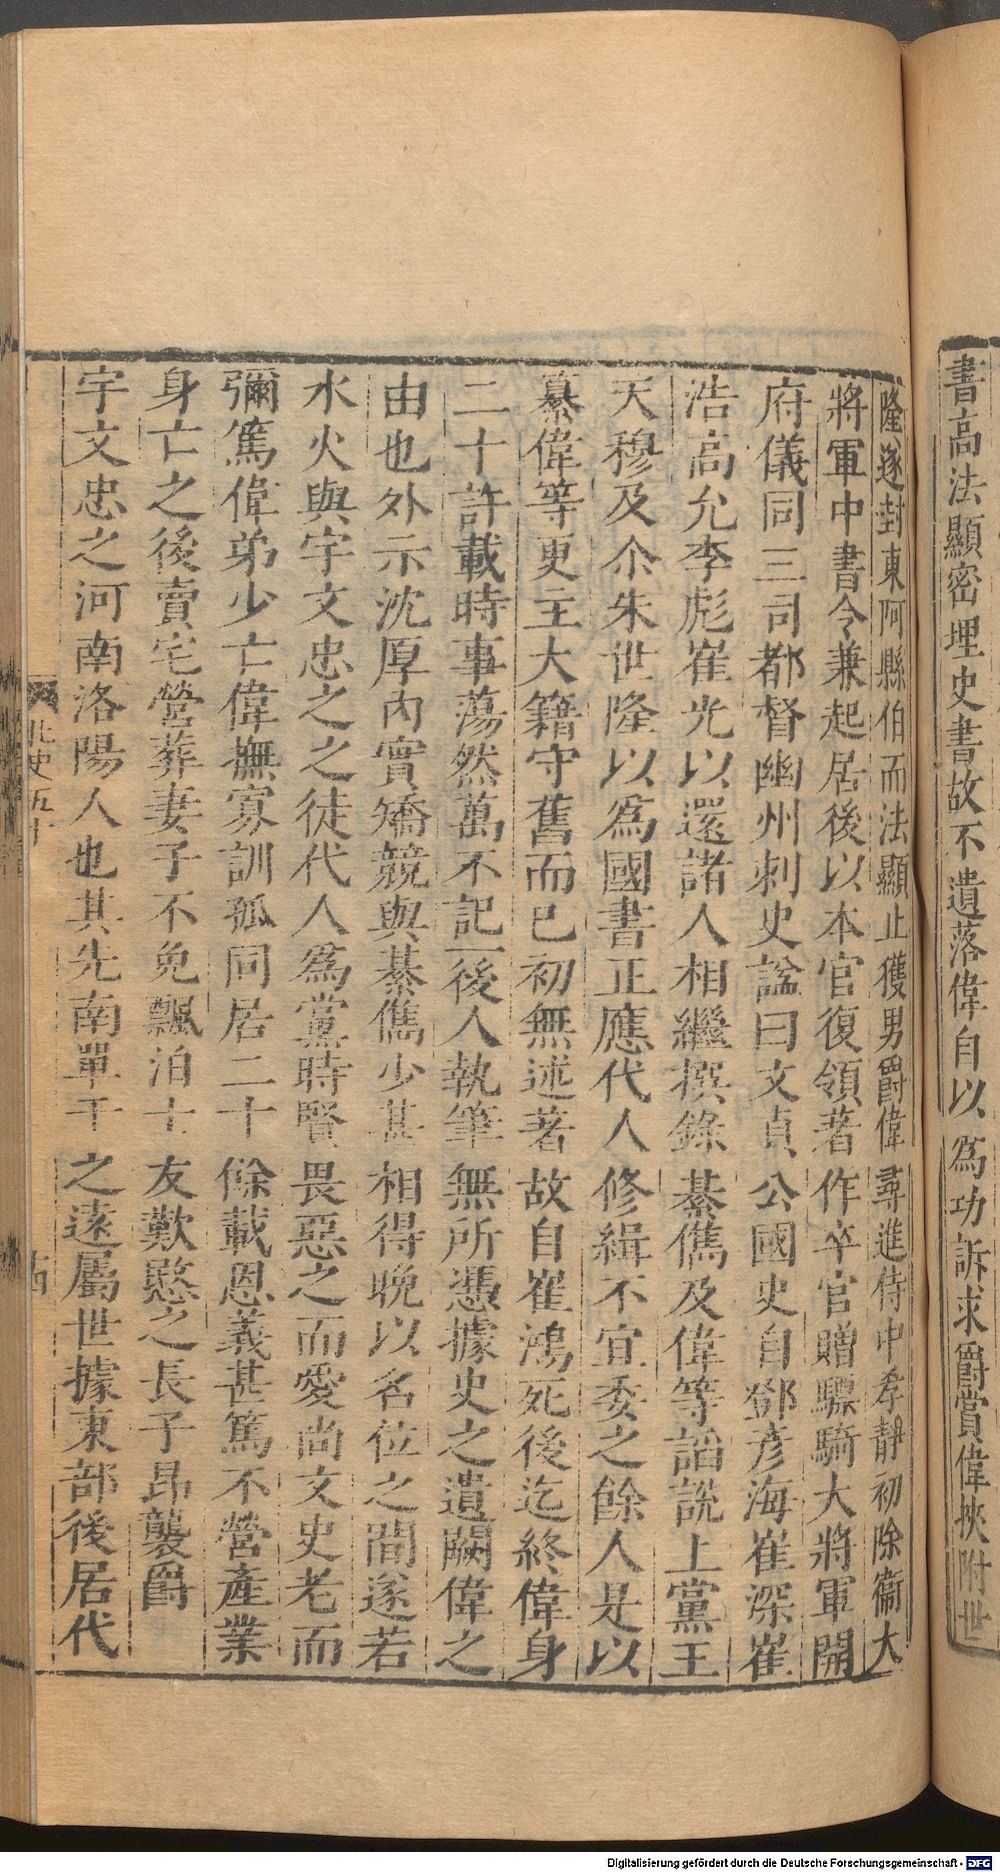 書高法顯密埋史書故不遺落偉自以爲功訴求爵賞偉挾附世
隆遂封東阿縣伯而法顯止獲男爵偉尋進侍中孝靜初除衞大
將軍中書令兼起居後以本官復領著作卒官贈驃騎大將軍開
府儀同三司都督幽州刺史諡曰文貞公國史自鄧彦海崔深崔
浩高允李彪崔光以還諸人相繼撰錄綦儁及偉等諂說上黨王
天穆及尒朱世隆以爲國書正應代人修緝不宜委之餘人是以
綦偉等更主大籍守舊而已初無述著故自崔鴻死後迄終偉身
二十許載時事蕩然萬不記一後人執筆無所憑據史之遺闕偉之
由也外示沈厚內實矯競與綦儁少甚相得晚以名位之間遂若
水火與宇文忠之之徒代人爲黨時賢畏惡之而愛尚文史老而
彌篤偉弟少亡偉撫寡訓孤同居二十餘載恩義甚篤不營產業
身亡之後賣宅營葬妻子不免飄泊士友歎愍之長子昂襲爵
宇文忠之河南洛陽人也其先南單于之遠屬世據東部後居代
北史五十
十四
Digitalisierung gefördert durch die Deutsche Forschungsgemeinschaft - DFG